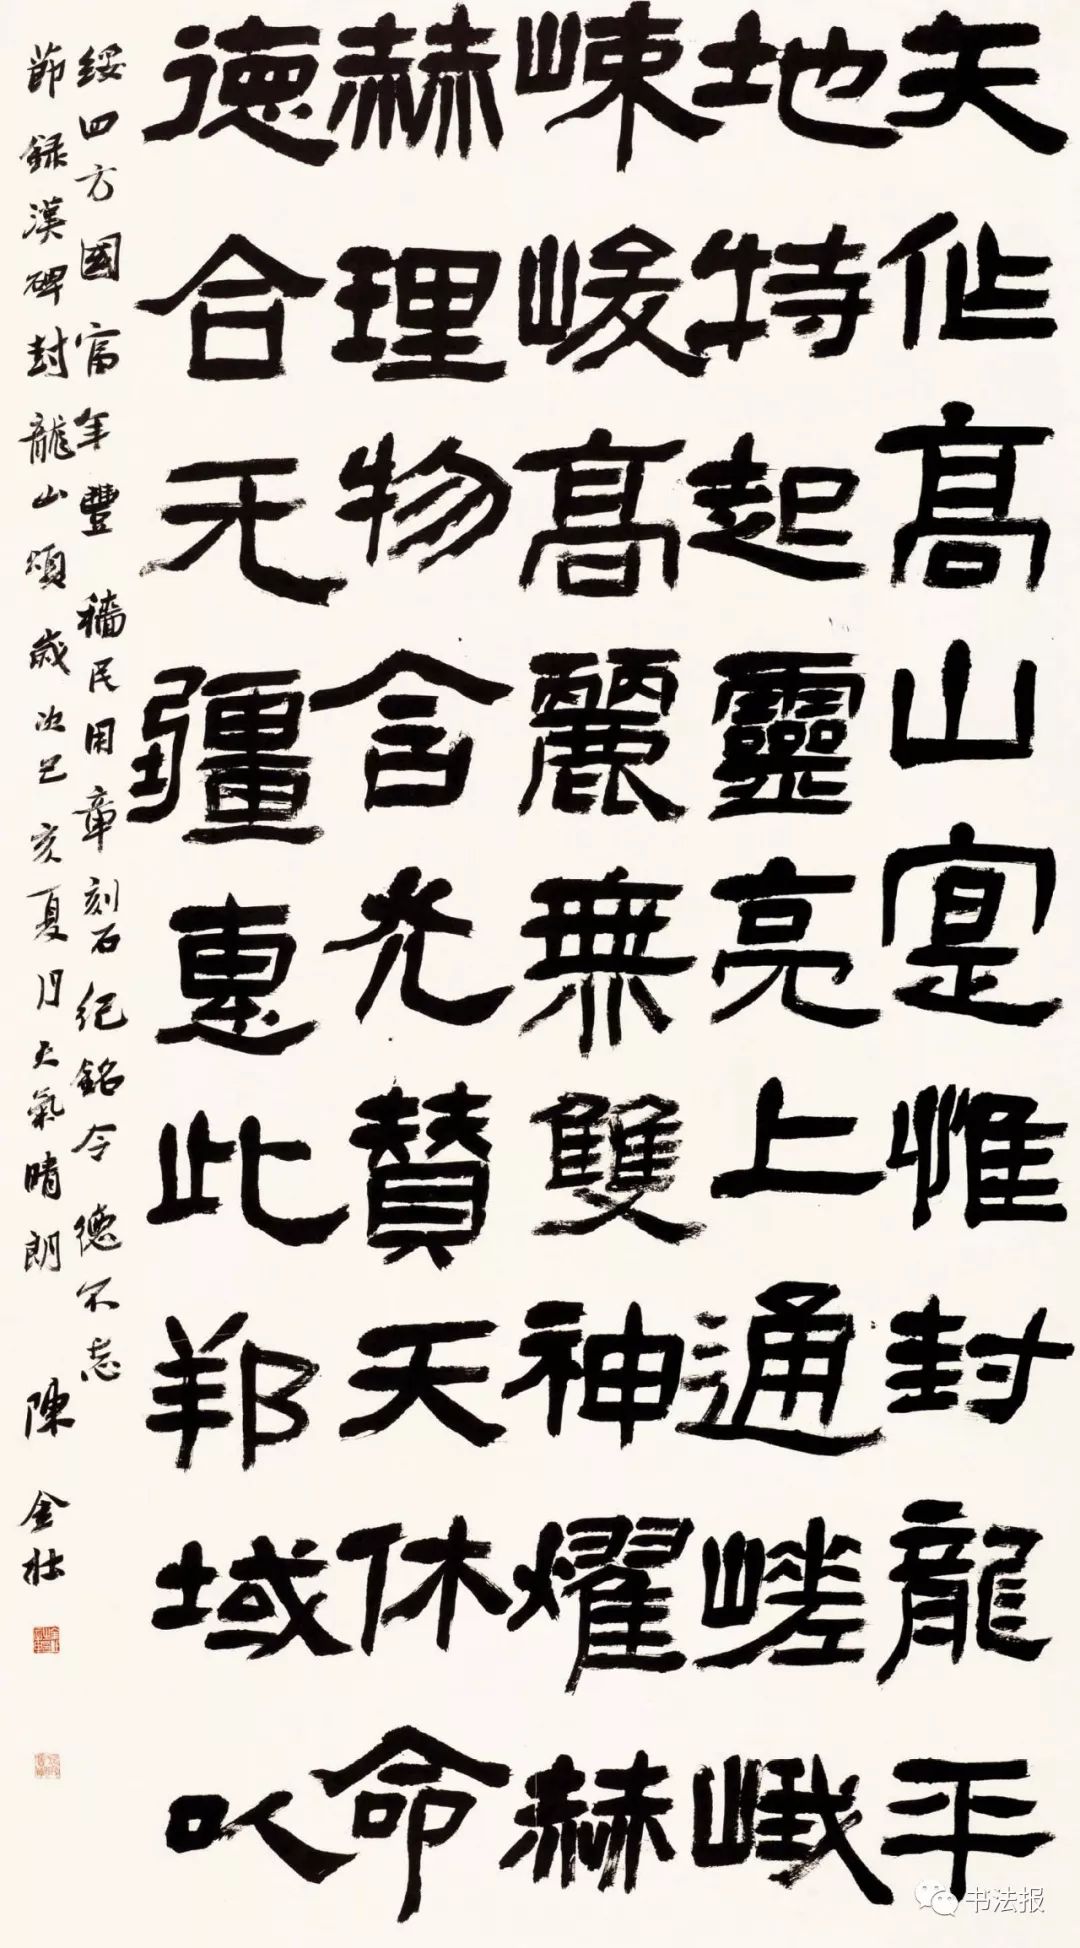 天作高山寔惟封龍平
地特起靈亮上通嵯峨
崠峻高麗無雙神燿赫
赫理物含光贊天休命
德合无疆惠此邦域以
綏四方國富年豐穡民用章刻石紀銘令德不忘
節録漢碑封龍山頌歲次己亥夏月天氣晴朗 陳金壯
书法报